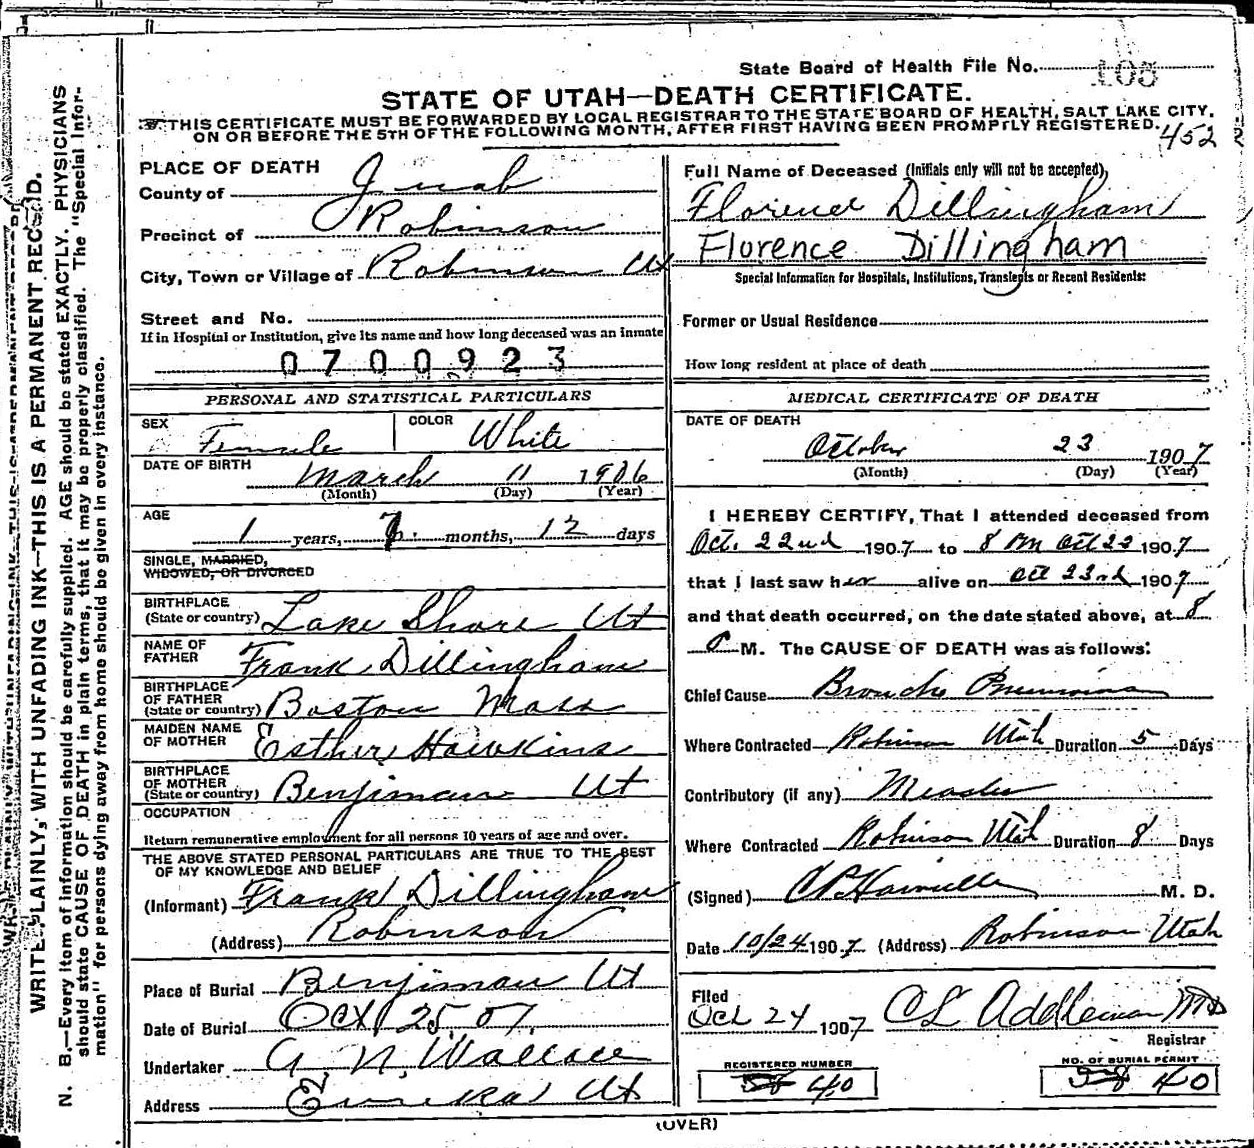 State Board of Health File No. 105
STATE OF UTAH—DEATH CERTIFICATE.
THIS CERTIFICATE MUST BE FORWARDED BY LOCAL REGISTRAR TO THE STATE BOARD OF HEALTH, SALT LAKE CITY,
ON OR BEFORE THE 5TH OF THE FOLLOWING MONTH, AFTER FIRST HAVING BEEN PROMPTLY REGISTERED.
452
WRITE PLAINLY, WITH UNFADING INK—THIS IS A PERMANENT RECORD.
N. B.—Every item of information should be carefully supplied. AGE should be stated EXACTLY. PHYSICIANS
should state CAUSE OF DEATH in plain terms, that it may be properly classified. The "Special Infor-
mation" for persons dying away from home should be given in every instance.
PLACE OF DEATH
County of Juab
Precinct of Robinson
City, Town or Village of Robinson Ut
Street and No.
If in Hospital or Institution, give its name and how long deceased was an inmate
0700923
PERSONAL AND STATISTICAL PARTICULARS
SEX Female COLOR White
DATE OF BIRTH March 11 1906
(Month) (Day) (Year)
AGE 1 years, 7 months, 12 days
SINGLE, MARRIED,
WIDOWED, OR DIVORCED
BIRTHPLACE
(State or country) Lake Shore Ut
NAME OF
FATHER Frank Dillingham
BIRTHPLACE
OF FATHER
(State or country) Boston Mass
MAIDEN NAME
OF MOTHER Esther Hawkins
BIRTHPLACE
OF MOTHER
(State or country) Benjiman Ut
OCCUPATION
Return remunerative employment for all persons 10 years of age and over.
THE ABOVE STATED PERSONAL PARTICULARS ARE TRUE TO THE BEST
OF MY KNOWLEDGE AND BELIEF
(Informant) Frank Dillingham
(Address) Robinson
Place of Burial Benjiman Ut
Date of Burial Oct 25, 07.
Undertaker A. N. Wallace
Address Eureka Ut
Full Name of Deceased (Initials only will not be accepted)
Florence Dillingham
Florence Dillingham
Special Information for Hospitals, Institutions, Transients or Recent Residents:
Former or Usual Residence
How long resident at place of death
MEDICAL CERTIFICATE OF DEATH
DATE OF DEATH
October 23 1907
(Month) (Day) (Year)
I HEREBY CERTIFY, That I attended deceased from
Oct. 22nd 1907 to 8 PM Oct 23 1907
that I last saw her alive on Oct 23rd 1907
and that death occurred, on the date stated above, at 8
P M. The CAUSE OF DEATH was as follows:
Chief Cause Broncho Pneumonia
Where Contracted Robinson Utah Duration 5 Days
Contributory (if any) Measles
Where Contracted Robinson Utah Duration 8 Days
(Signed) M. D.
Date 10/24 1907 (Address) Robinson Utah
Filed
Oct 24 1907 CL Addleman MD
Registrar
REGISTERED NUMBER
40
NO. OF BURIAL PERMIT
40
(OVER)